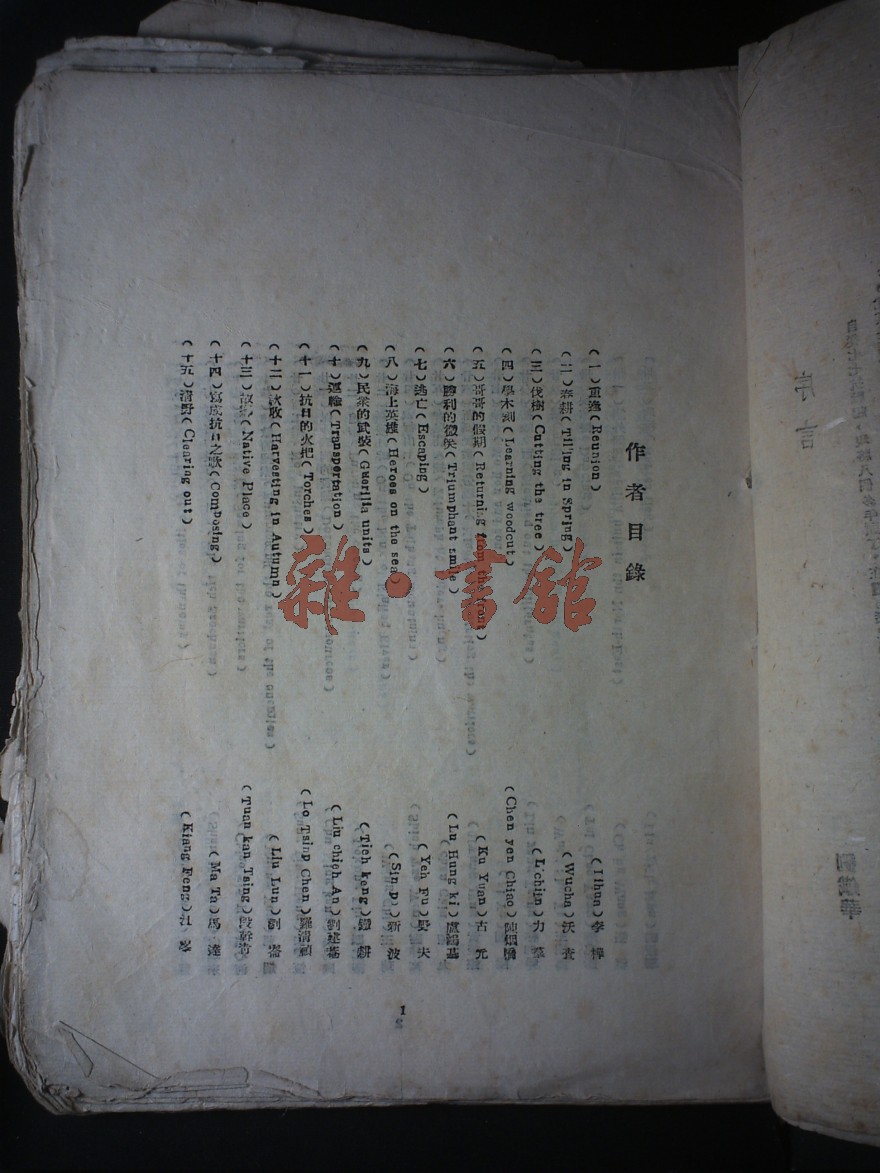 作者目錄
（一）重逢（Reunion） （Lihua）李樺
（二）春耕（Tilling in Spring） （Wucha）沃查
（三）伐樹（Cutting the tree） （Lichün）力羣
（四）學木刻（Learning woodcut） （Chen yen Chiao）陳烟橋
（五）哥哥的假期（Returning from the front） （Ku Yuan）古元
（六）勝利的微笑（Triumphant smile） （Lu Hung ki）盧鴻基
（七）逃亡（Escaping） （Yeh Fu）野夫
（八）海上英雄（Heroes on the sea） （Sin Po）新波
（九）民衆的武裝（Guerilla units） （Tieh keng）鐵耕
（十）運輸（Transportation） （Liu chieh An）劉建菴
（十一）抗日的火把（Torches） （Lo Tsing Chen）羅清楨
（十二）秋收（Harvesting in Autumn） （Liu Lun）劉崙
（十三）故鄉（Native Place） （Tuan kan Tsing）段幹青
（十四）寫成抗日之歌（Composing） （Ma Ta）馬達
（十五）清野（Clearing out） （Kiang Feng）江峯
1
序言
雜·書館